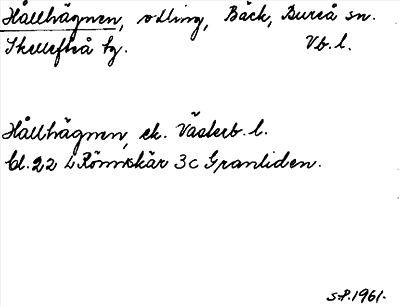 Hållhägnen, odling, Bäck, Bureå sn.
Skellefteå tg. Vb. l.
Hållhägnen, ek. Västerb. l.
bl. 22 L Rönnskär 3c Granliden.
S.P. 1961.